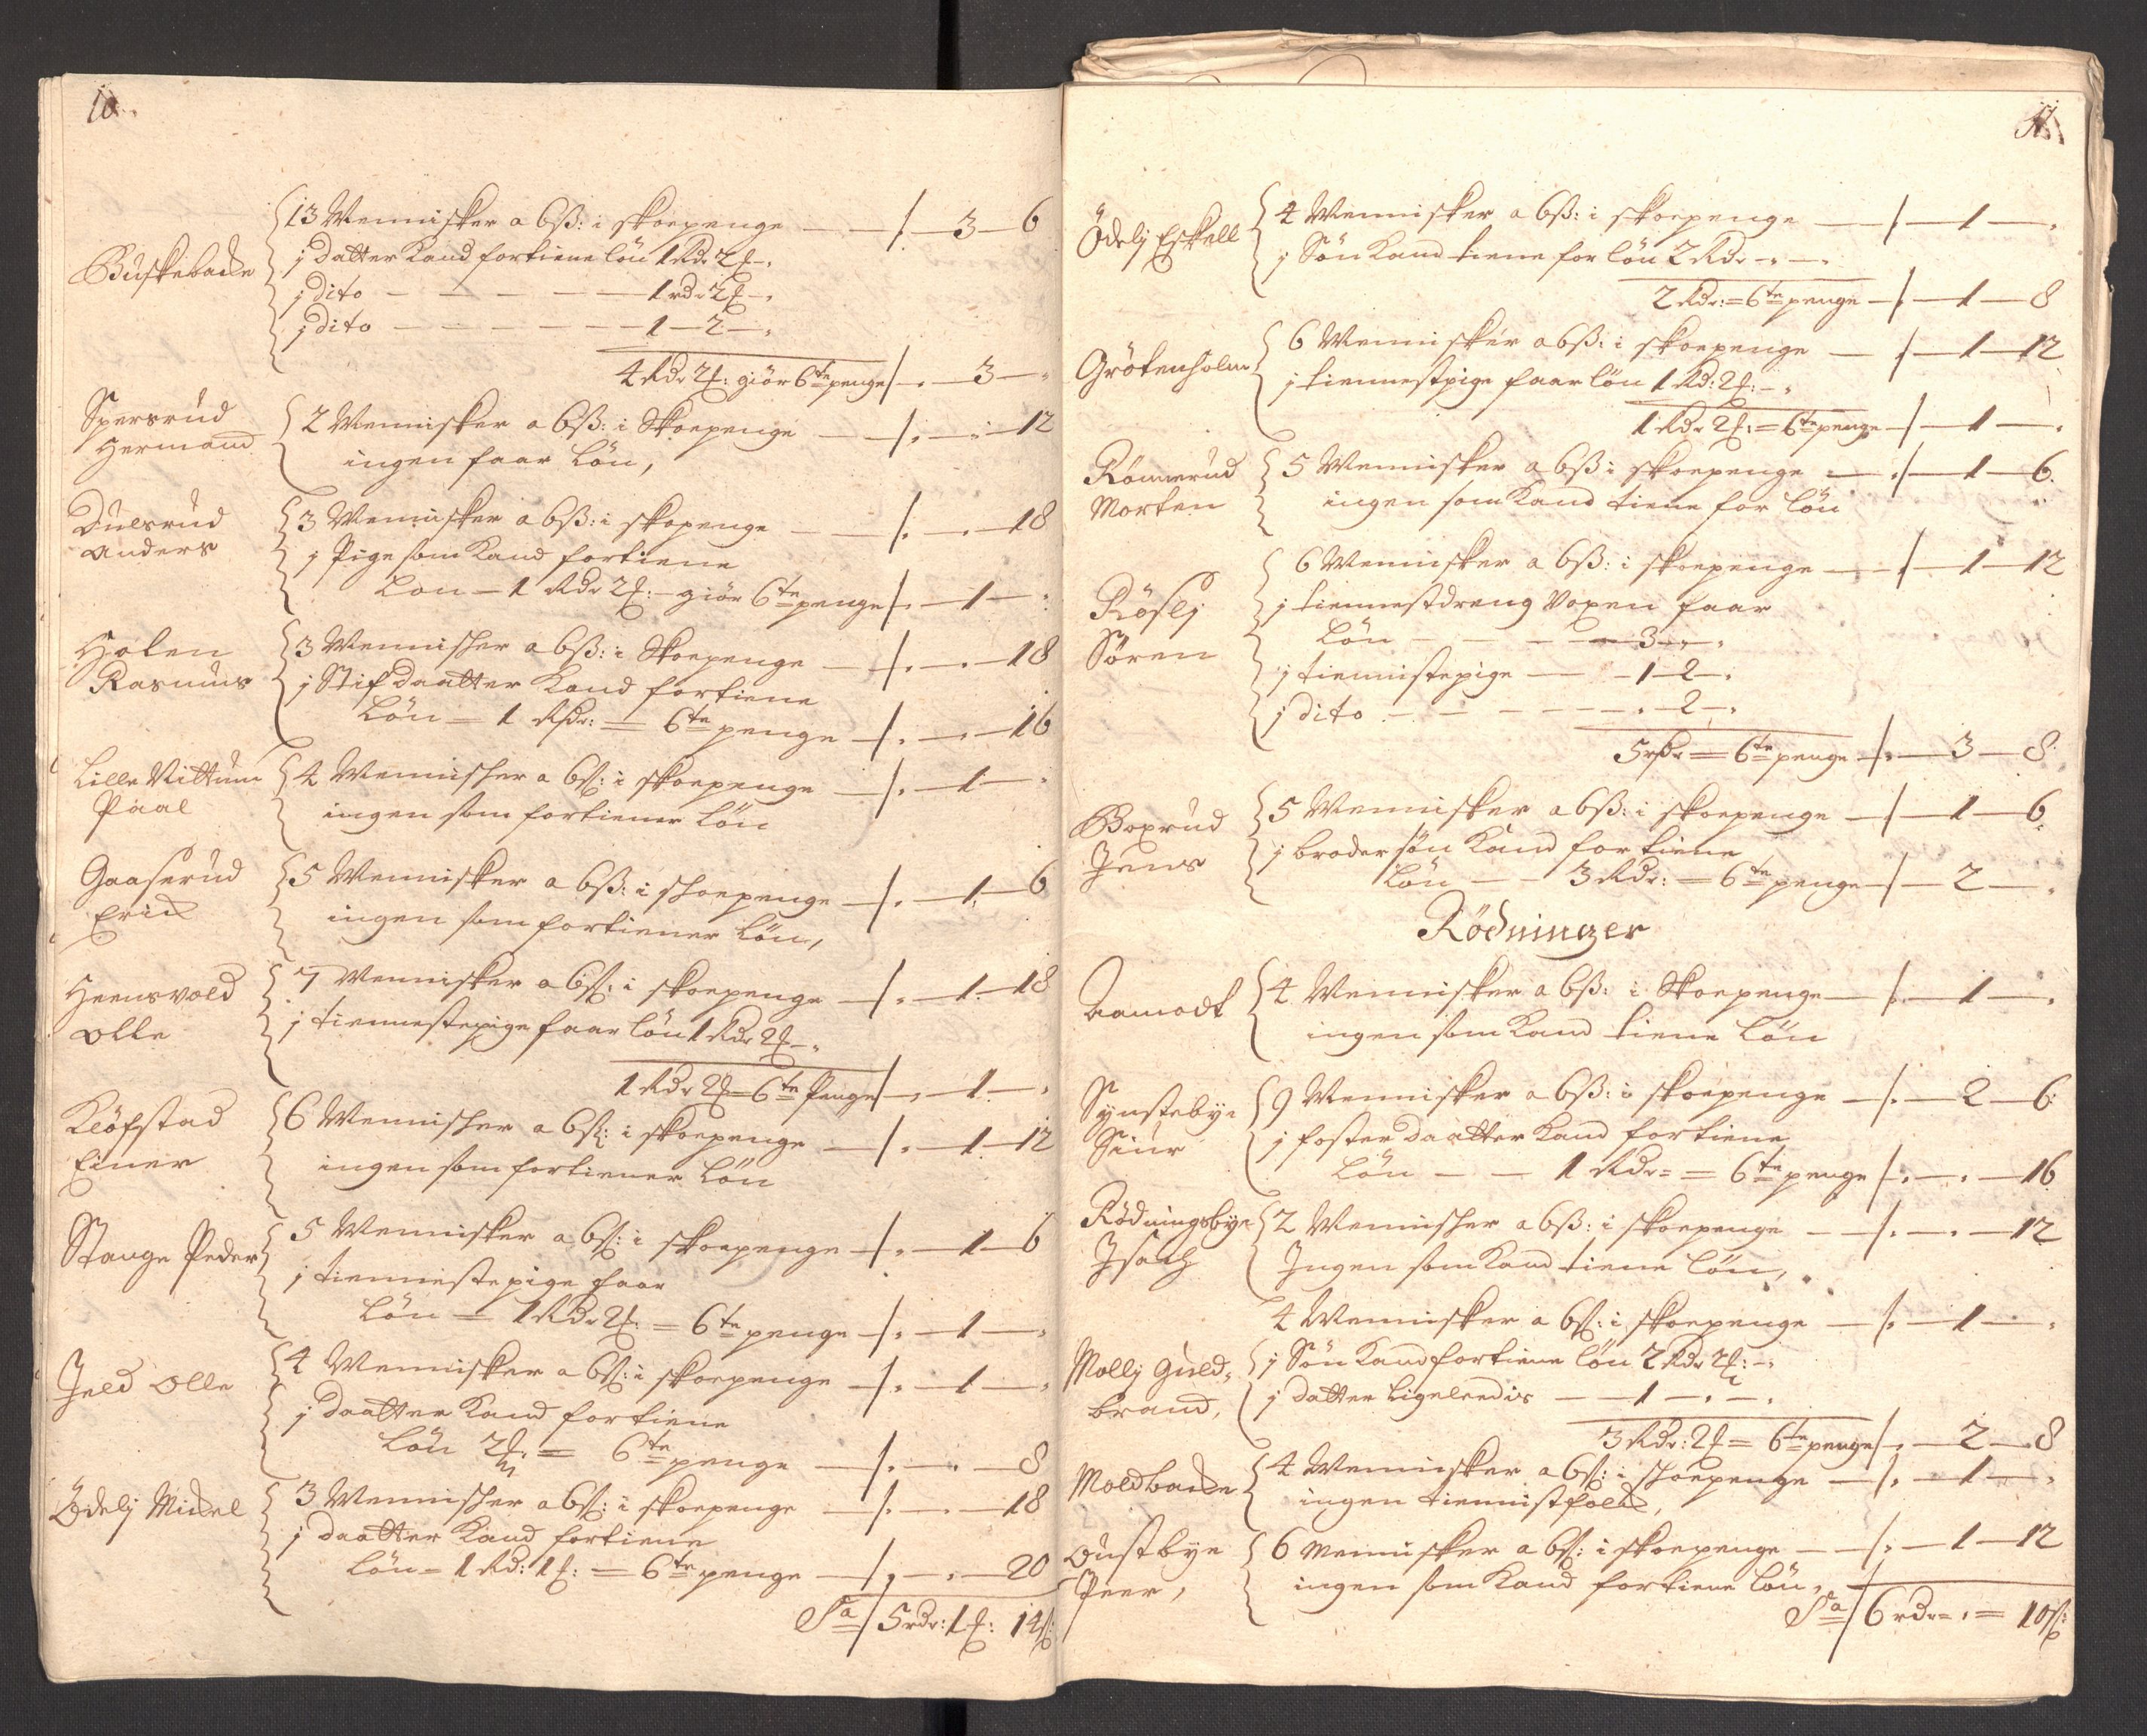 10.
Buskebache
13 Mennisker a 6ß: i skoepenge — /. — 3 — 6
j datter Kand fortiene løn 1 Rdr 2 ƒ — „
j dito — — — — — 1 rdr 2 ƒ — „
j dito — — — — — 1 — 2 — „
4 Rdr 2ƒ: giör 6te penge / „ — 3 — „
Spersrud
Hermand
2 Mennisker a 6ß: i Skoepenge — /. — „ — 12
ingen faar Løn,
Dulsrud
Anders
3 Mennisker a 6ß: i skopenge — /. — „ — 18
j Pige som Kand fortiene
Lon — 1 Rdr 2ƒ: — giör 6te penge /. — 1 — „
Holen
Rasmus
3 Mennisker a 6ß: i Skoepenge — /. — „ — 18
j Stifdaatter Kand fortiene
Løn — 1 Rdr: = 6te penge — /. — „ — 16
Lille Vittum
Paal
4 Mennisker a 6ß: i skoepenge — /. — 1 — „
ingen som fortiener Løn
Gaaserud
Erich
5 Mennisker a 6ß: i skoepenge — /. — 1 — 6
ingen som fortiener Løn,
Heensvold
Olle
7 Mennisker a 6ß: i skoepenge — /. — 1 — 18
j tiennestepige faar løn 1 Rdr 2ƒ — „
1 Rdr 2ƒ = 6te Penge / — „ — 1 — „
Kløfstad
Einer
6 Mennisker a 6ß: i skoepenge — /. — 1 — 12
ingen som fortiener Løn
Stange Peder
5 Mennisker a 6ß: i skoepenge — /. — 1 — 6
j tiennestepige faar
Løn = 1 Rdr 2ƒ: = 6te penge — /. — 1 — „
Jeld Olle
4 Mennisker a 6ß: i skoepenge — /. — 1 — „
j daatter Kand fortiene
Løn 2ƒ: = 6te penge — /. — „ — 8
Ødelj Michel
3 Mennisker a 6ß: i skoepenge — /. — „ — 18
j daatter Kand fortiene
Løn = 1 Rd: 1ƒ: = 6te penge — /. — „ — 20
Sa / 5 rdr: 1 ƒ: 14ß:
11.
Ødelj Eskell
4 Mennisker a 6ß: i skoepenge — /. — 1 — „
j Søn Kand tiene for løn 2 Rdr — „ — „
2 Rdr: = 6te penge — /. — 1 — 8
Grøtenholm
6 Mennisker a 6ß: i skoepenge — /. — 1 — 12
j tiennestpige faar løn 1 Rd: 2ƒ: — „
1 Rdr 2ƒ: = 6te penge — /. — 1 — „
Rømerud
Morten
5 Mennisker a 6ß i skoepenge — /. — 1 — 6
ingen som Kand tiene for Løn
Røslj
Søren
6 Mennisker a 6ß: i skoepenge — /. — 1 — 12
j tiennestdreng voxen faar
Løn — — — — 3 — „ — „
j tiennistepige — — 1 — 2 — „
j dito — — — — — „ — 2 — „
5 rdr = 6te penge — /. — 3 — 8
Boxrud
Jens
5 Mennisker a 6ß: i skoepenge — /. — 1 — 6
j brodersøn Kand fortiene
Løn — — 3 Rdr: = 6te penge — /. — 2 — „
Rödninger
Aamodt
4 Mennisker a 6ß: i Skoepenge — /. — 1 — „
ingen som Kand tiene Løn
Synstebye
Siur
9 Mennisker a 6ß: i skoepenge — /. — 2 — 6
j fosterdaatter Kand fortiene
Løn — — 1 Rdr = = 6te penge /. — „ — 16
Rødningsbye
Jsach
2 Mennisker a 6ß: i skoepenge — /. — „ — 12
Jngen som Kand tiene Løn,
Mollj Guld,
brand,
4 Mennisker a 6ß: i skoepenge — /. — 1 — „
j Søn Kand fortiene løn 2 Rdr 2ƒ: — „
j datter ligeleedis — 1 — „ — „
3 Rdr: 2ƒ = 6te penge /. — 2 — 8
Moldbache
4 Mennisker a 6ß: i skoepenge — /. — 1 — „
ingen tiennistfolch,
Oustbye
Peer,
6 Mennisker a 6ß: i skoepenge — /. — 1 — 12
ingen som Kand fortiene Løn,
Sa / 6 rdr = „ = 10ß: